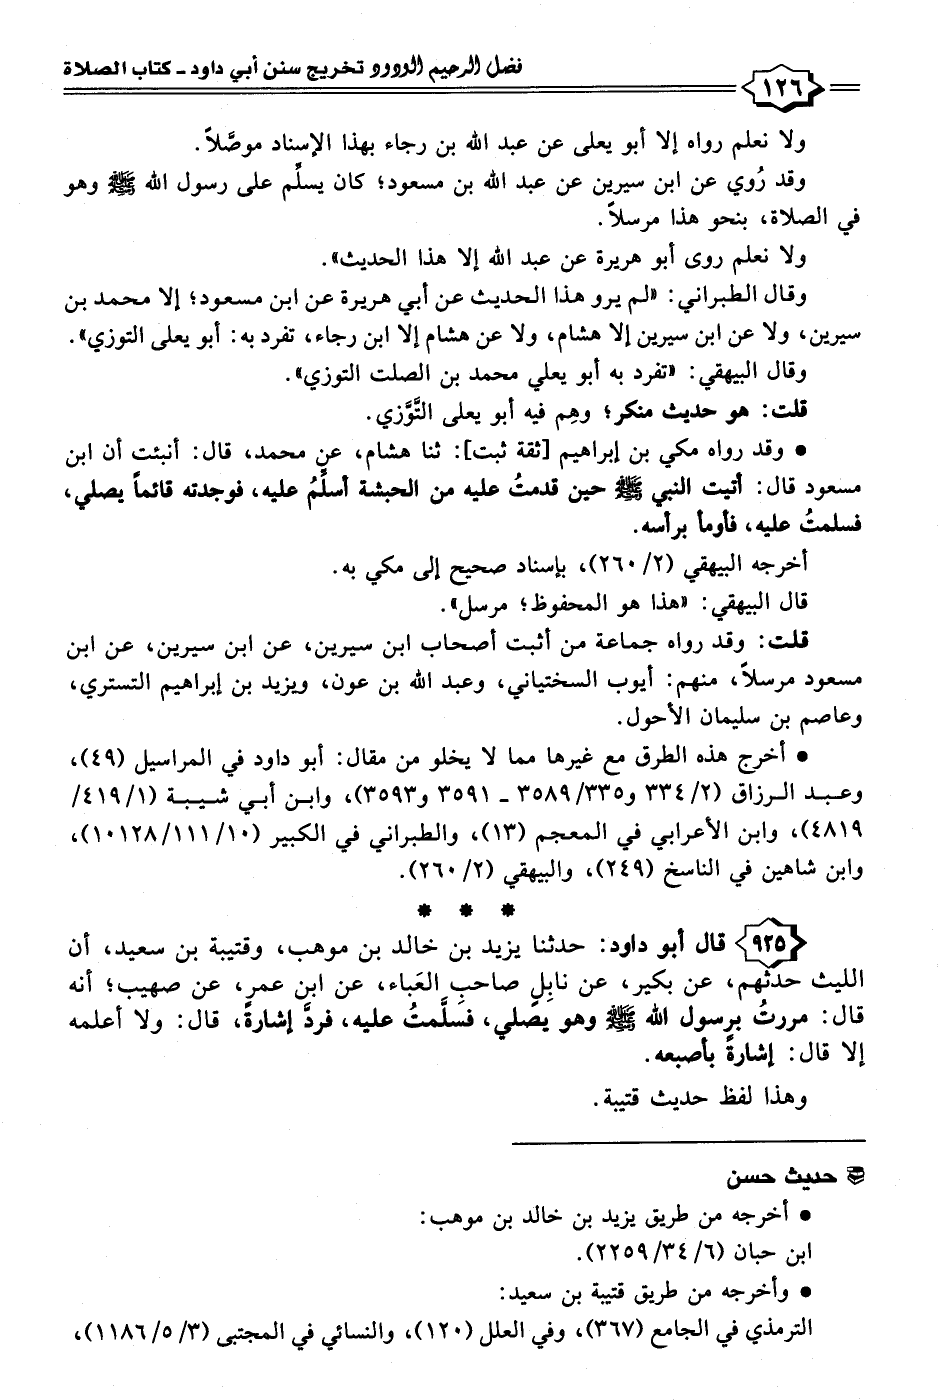 فضل الرحيم الودود تخريج سنن أبي داود - كتاب الصلاة
١٢٦
ولا نعلم رواه إلا أبو يعلى عن عبد الله بن رجاء بهذا الإسناد موصَّلاً.
وقد رُوي عن ابن سيرين عن عبد الله بن مسعود؛ كان يسلِّم على رسول الله ﷺ وهو
في الصلاة، بنحو هذا مرسلاً.
ولا نعلم روى أبو هريرة عن عبد الله إلا هذا الحديث».
وقال الطبراني: «لم يرو هذا الحديث عن أبي هريرة عن ابن مسعود؛ إلا محمد بن
سيرين، ولا عن ابن سيرين إلا هشام، ولا عن هشام إلا ابن رجاء، تفرد به: أبو يعلى التوزي».
وقال البيهقي: «تفرد به أبو يعلي محمد بن الصلت التوزي».
قلت: هو حديث منكر؛ وهِم فيه أبو يعلى التَّوَّزي.
• وقد رواه مكي بن إبراهيم [ثقة ثبت]: ثنا هشام، عن محمد، قال: أنبئت أن ابن
مسعود قال: أتيت النبي ﷺ حين قدمتُ عليه من الحبشة أسلِّمُ عليه، فوجدته قائماً يصلي،
فسلمتُ عليه، فأومأ برأسه.
أخرجه البيهقي (٢/ ٢٦٠)، بإسناد صحيح إلى مكي به.
قال البيهقي: «هذا هو المحفوظ؛ مرسل».
قلت: وقد رواه جماعة من أثبت أصحاب ابن سيرين، عن ابن سيرين، عن ابن
مسعود مرسلاً، منهم: أيوب السختياني، وعبد الله بن عون، ويزيد بن إبراهيم التستري،
وعاصم بن سليمان الأحول.
• أخرج هذه الطرق مع غيرها مما لا يخلو من مقال: أبو داود في المراسيل (٤٩)،
وعبد الرزاق (٢/ ٣٣٤ و٣٣٥/ ٣٥٨٩ ـ ٣٥٩١ و٣٥٩٣)، وابن أبي شيبة (١/ ٤١٩/
٤٨١٩)، وابن الأعرابي في المعجم (١٣)، والطبراني في الكبير (١٠/ ١١١/ ١٠١٢٨)،
وابن شاهين في الناسخ (٢٤٩)، والبيهقي (٢/ ٢٦٠).
* * *
٩٢٥ قال أبو داود: حدثنا يزيد بن خالد بن موهب، وقتيبة بن سعيد، أن
الليث حدثهم، عن بكير، عن نابِلٍ صاحبِ العَباء، عن ابن عمر، عن صهيب؛ أنه
قال: مررتُ برسول الله ﷺ وهو يصلي، فسلَّمتُ عليه، فردَّ إشارةً، قال: ولا أعلمه
إلا قال: إشارةً بأصبعه.
وهذا لفظ حديث قتيبة.
حديث حسن
• أخرجه من طريق يزيد بن خالد بن موهب:
ابن حبان (٦/ ٣٤/ ٢٢٥٩).
• وأخرجه من طريق قتيبة بن سعيد:
الترمذي في الجامع (٣٦٧)، وفي العلل (١٢٠)، والنسائي في المجتبى (٣/ ٥/ ١١٨٦)،